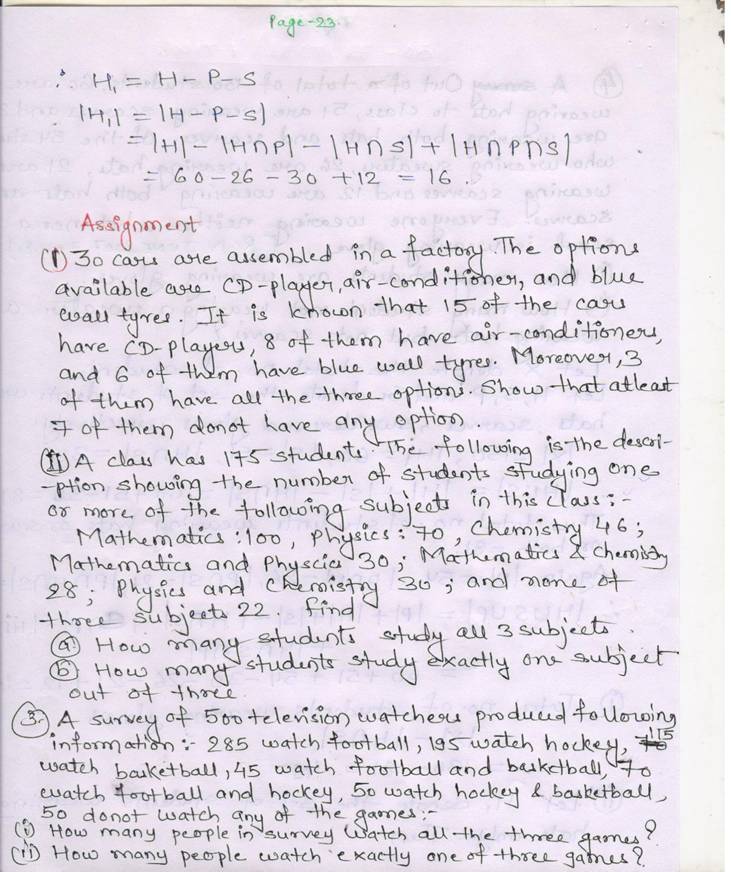 Page-23.
∴ H₁ = H - P - S
|H₁| = |H - P - S|
= |H| - |H∩P| - |H∩S| + |H∩P∩S|
= 60 - 26 - 30 + 12 = 16.
Assignment
(1) 30 cars are assembled in a factory. The options
available are CD-player, air-conditioner, and blue
wall tyres. It is known that 15 of the cars
have CD-players, 8 of them have air-conditioners,
and 6 of them have blue wall tyres. Moreover, 3
of them have all the three options. Show that atleast
7 of them donot have any option
(II) A class has 175 students. The following is the descri-
-ption showing the number of students studying one
or more of the following subjects in this class:-
Mathematics: 100, Physics: 70, Chemistry 46;
Mathematics and Physcis 30; Mathematics & Chemistry
28; Physics and Chemistry 30; and none of
three subjects 22. Find
(a) How many students study all 3 subjects.
(b) How many students study exactly one subject
out of three
(3.) A survey of 500 television watchers produced following
information:- 285 watch football, 195 watch hockey, 115
watch basketball, 45 watch football and basketball, 70
watch football and hockey, 50 watch hockey & basketball,
50 donot watch any of the games:-
(i) How many people in survey watch all the three games?
(ii) How many people watch exactly one of three games?